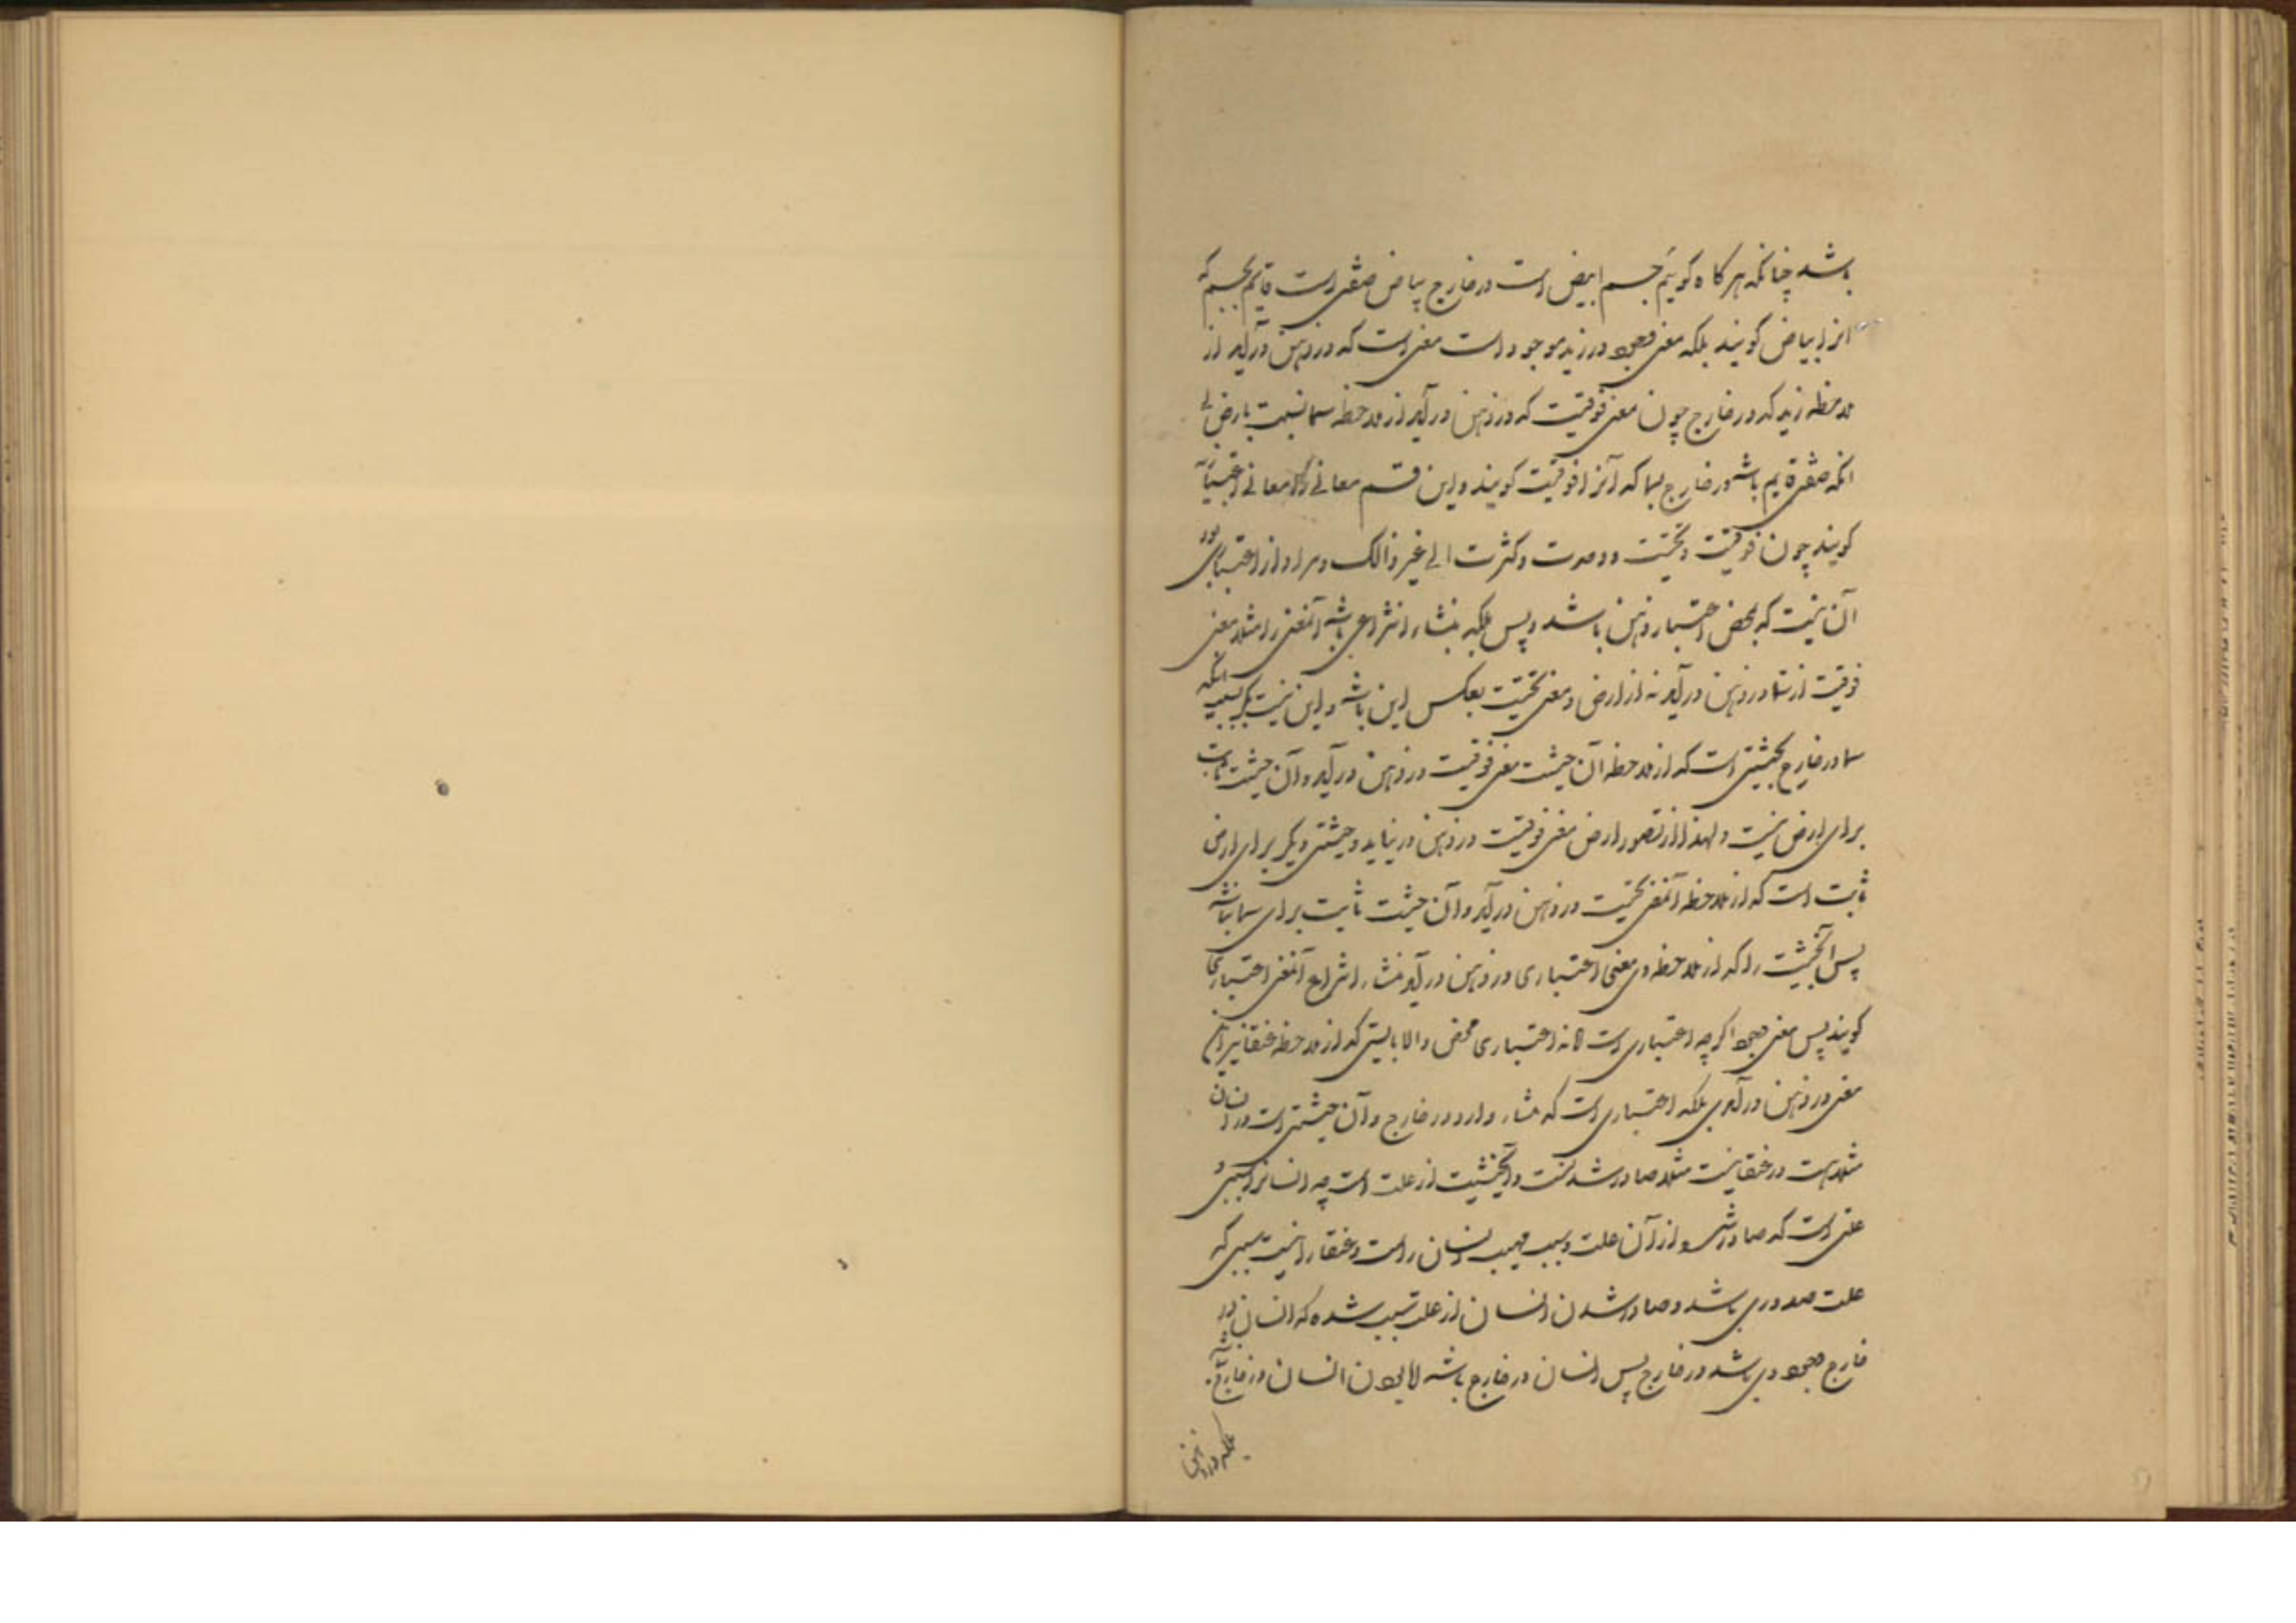 باشد چنانکه هرگاه کوییم جسم ابیض است در خارج بیاض صفتی است قایم بجسم که
انرا بیاض کویند بلکه معنی وجود در زید موجود است معنی است که در ذهن درآید از
ملاحظه زید که در خارج چون معنی فوقیت که در ذهن درآید از ملاحظه سما نسبت بارض بی
انکه صفتی قایم باشد در خارج بسما که آنرا فوقیت کویند و این قسم معانی را معانی اعتباری
کویند چون فوقیت و تحتیت و وحدت و کثرت الی غیر ذالک و مراد از اعتباری بودن
آن نیست که بمحض اعتبار ذهن باشد و بس بلکه منشاء انتزاعی باشد آنمعنی را مثلا معنی
فوقیت از سما در ذهن درآید نه از ارض و معنی تحتیت بعکس این باشد و این نیست مکر بسبب انکه
سما در خارج بحیثیتی است که از ملاحظه آن حیثیت معنی فوقیت در ذهن درآید و آن حیثیت ثابت
برای ارض نیست و لهذا از تصور ارض معنی فوقیت در ذهن درنیاید و حیثیتی دیکر برای ارض
ثابت است که از ملاحظه آن معنی تحتیت در ذهن درآید و آن حیثیت ثابت برای سما نباشد
پس آنحیثیت را که از ملاحظه وی معنی اعتباری در ذهن درآید منشاء انتزاع آنمعنی اعتباری
کویند پس معنی وجود اکرچه اعتباری است اما نه اعتباری محض و الا بایستی که از ملاحظه عنقا نیز این
معنی در ذهن درآمدی بلکه اعتباری است که منشاء دارد در خارج و آن حیثیتی است در انسان
مثلا هست در عنقا نیست مثلا صادر شدنست و آنحیثیت از علت است چه انسانرا سببی و
علتی است که صادر شود از آن علت و سبب انسان راست و عنقا را نیست سببی که
علت صدوری باشد و صادر شدن انسان از علت سبب شده که انسان در
خارج وجودی باشد در خارج پس انسان در خارج باشد لا بودن انسان در خارج
بلکه در ذهن